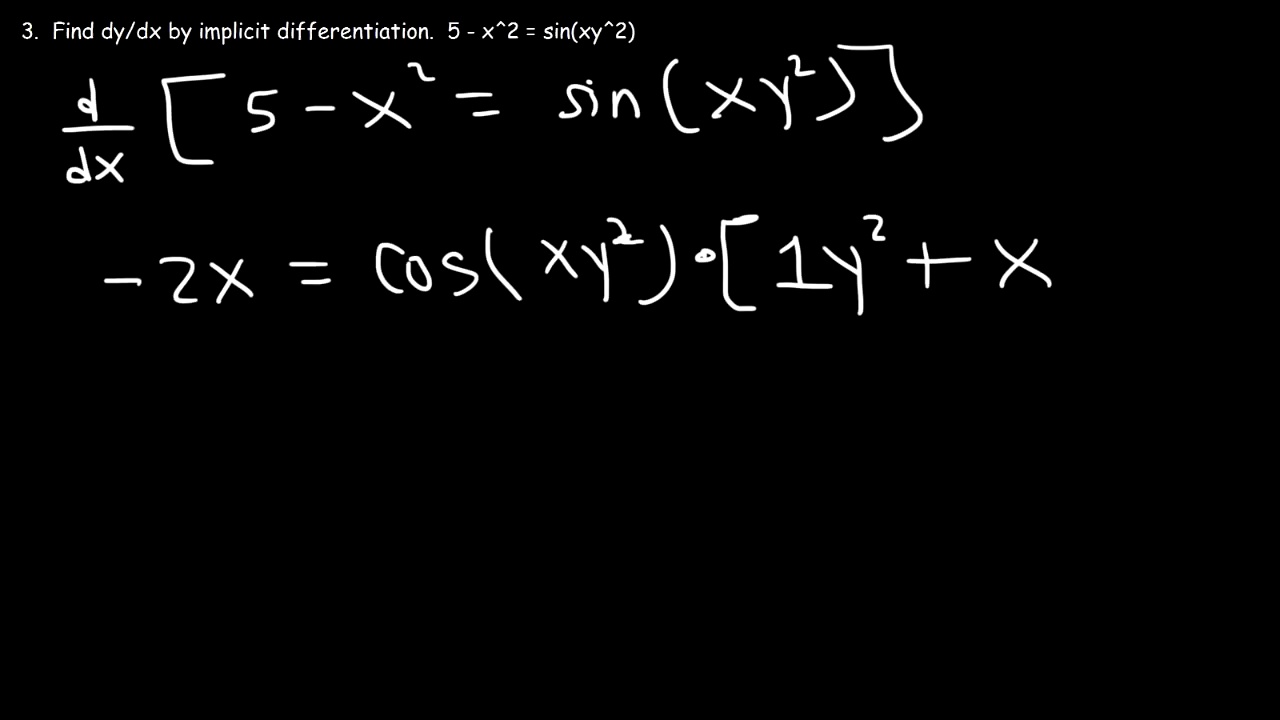 3. Find dy/dx by implicit differentiation. 5 - x^2 = sin(xy^2)
d/dx [5 - x² = sin(xy²)]
-2x = cos(xy²)·[1y² + x